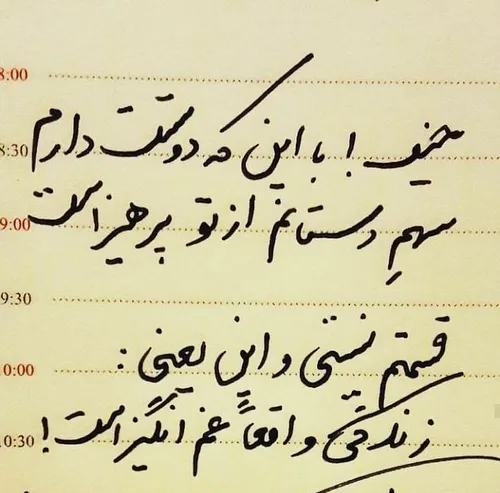 8:00
8:30 حیف ! با این که دوستت دارم
9:00 سهمِ دستانم از تو پرهیز است
9:30
10:00 قسمتم نیستی و این یعنی :
10:30 زندگی واقعاً غم انگیز است !